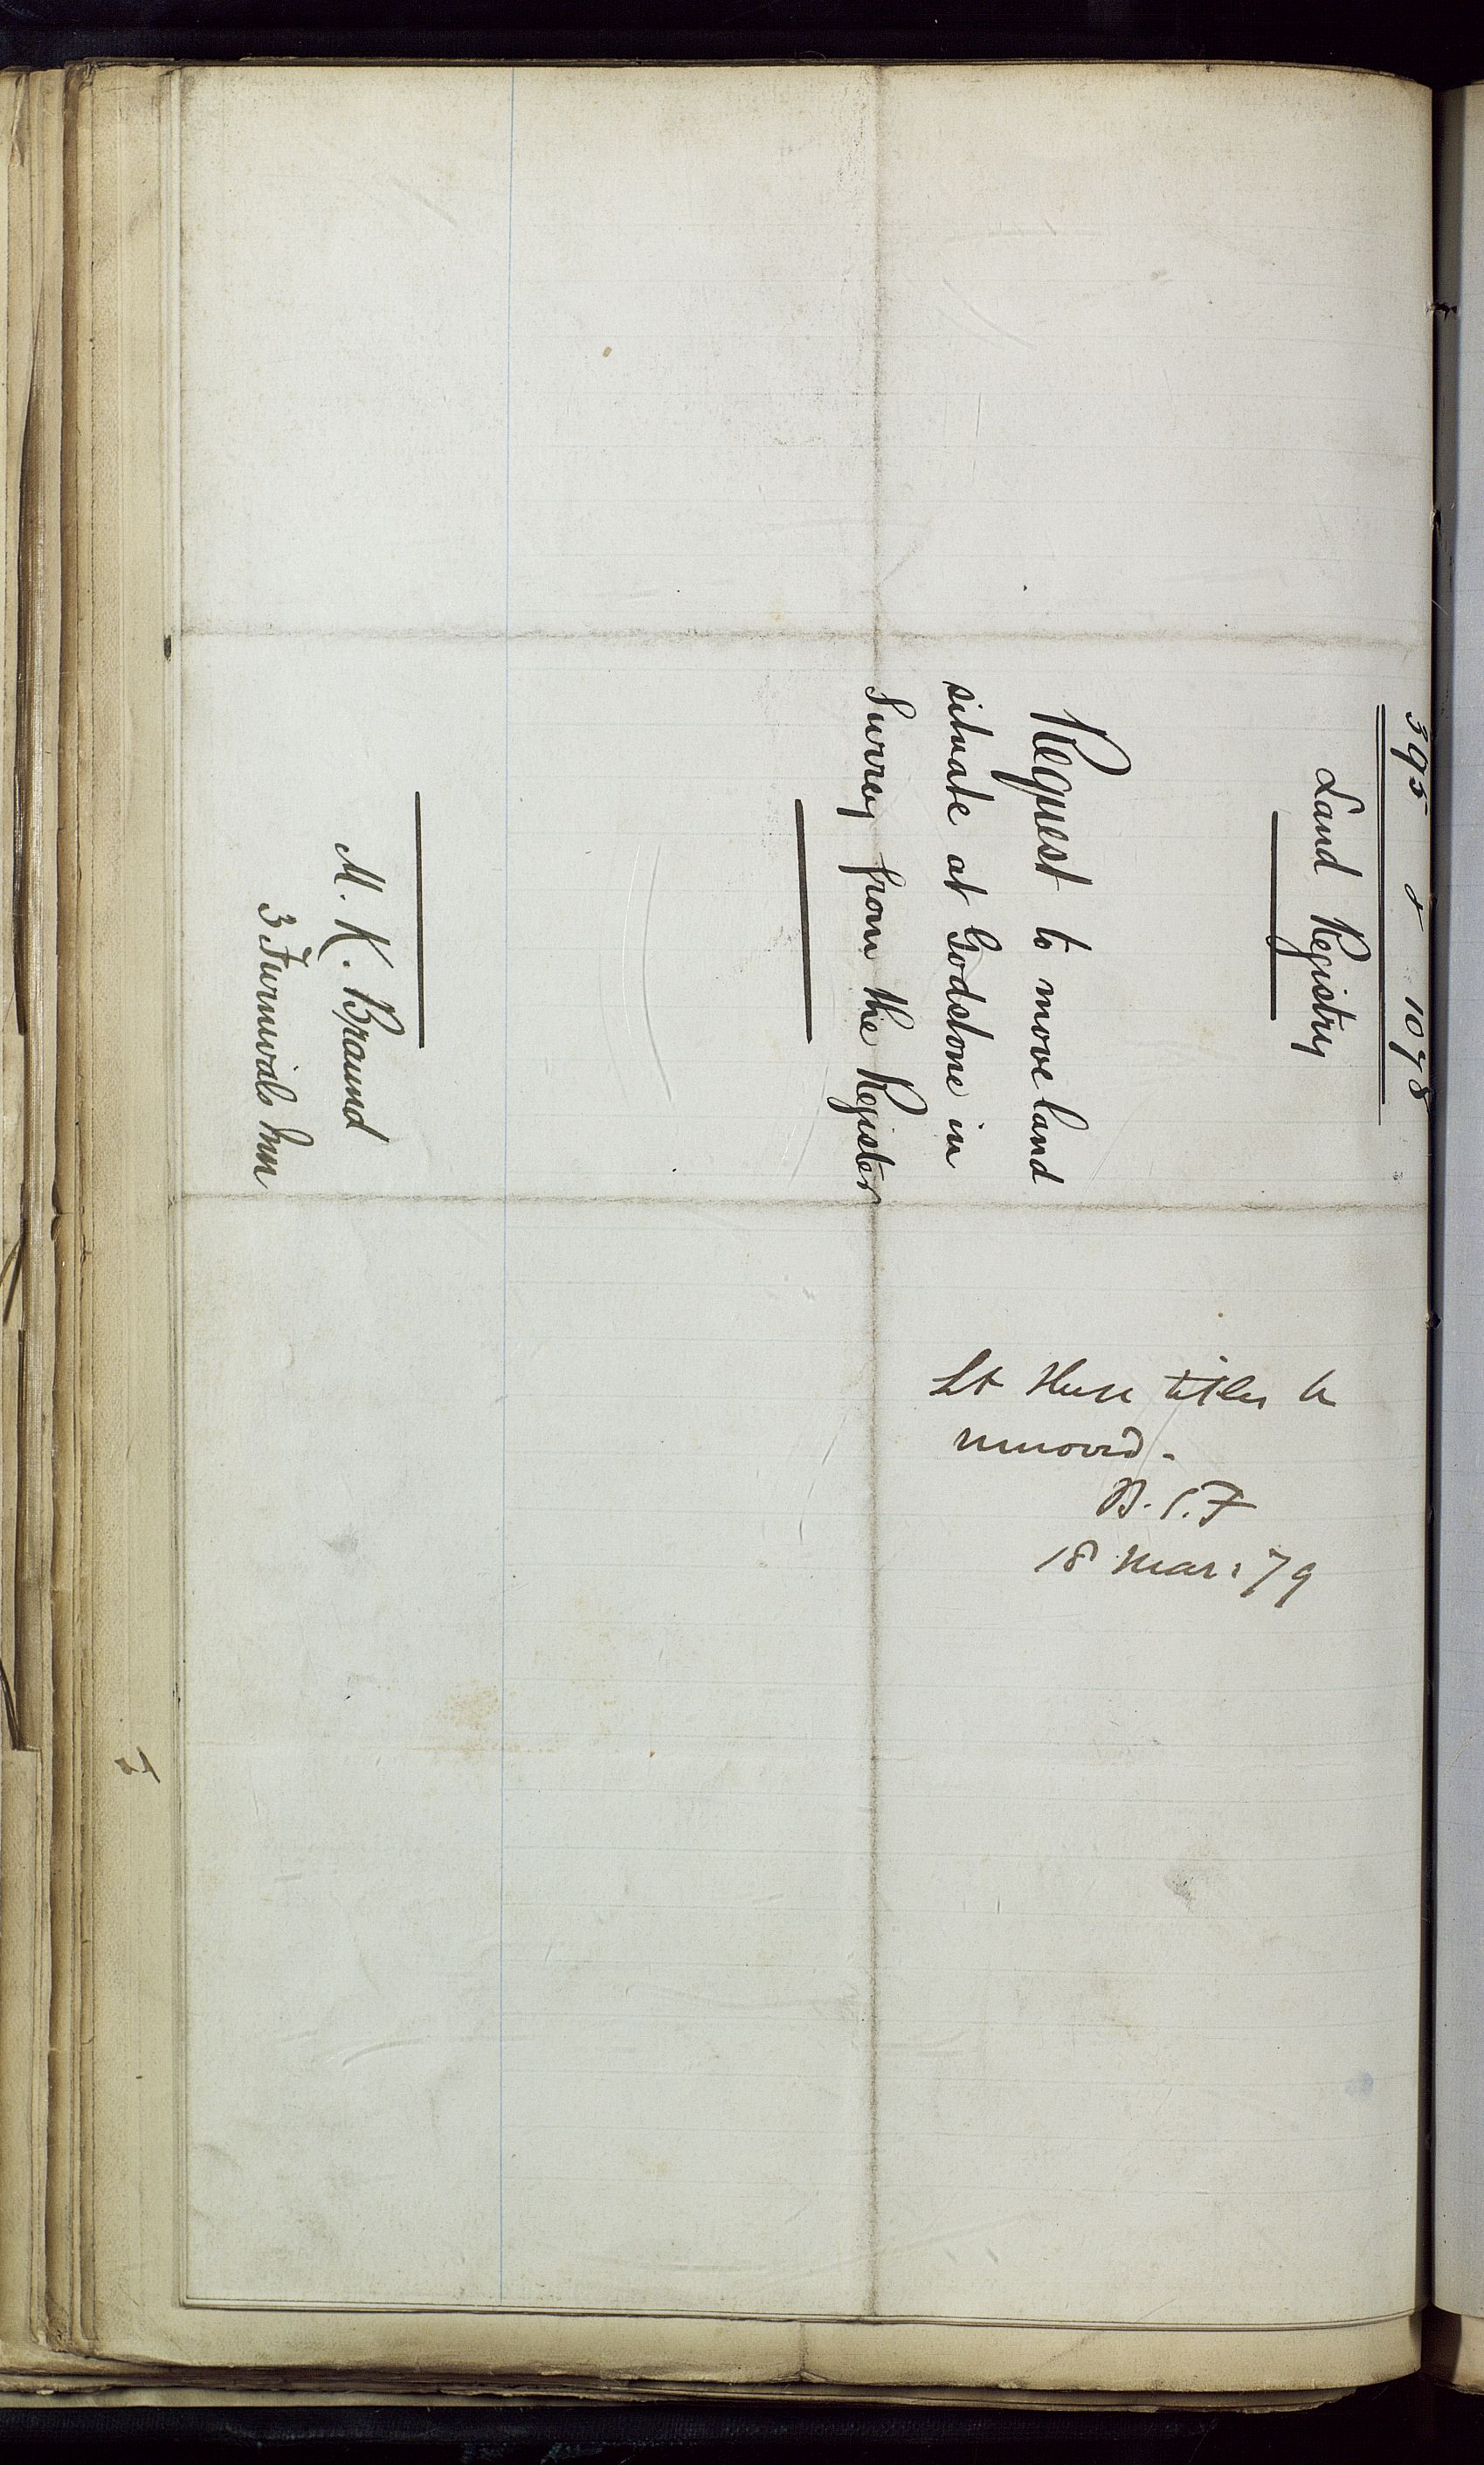 395 & 1078
Land Registry
Request to move land
situate at Godstone in
Surrey from the Register
M. K. Braund
3 Furnivals Inn
Let these titles be
removed.
B. S. F
18 Mar: 79